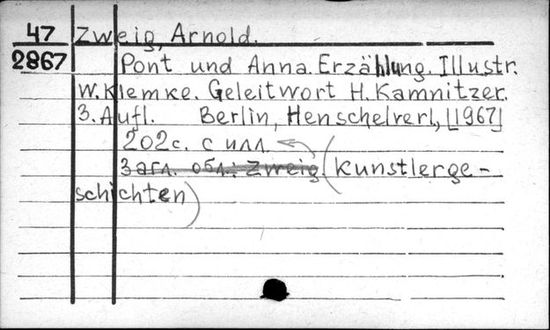 47 Zweig, Arnold.
2867 Pont und Anna. Erzählung. Illustr.
W. Klemke. Geleitwort H. Kamnitzer.
3. Aufl. Berlin, Henschelverl, [1967]
202 с. с илл.
Загл. обл.: Zweig (Kunstlerge-
schichten)